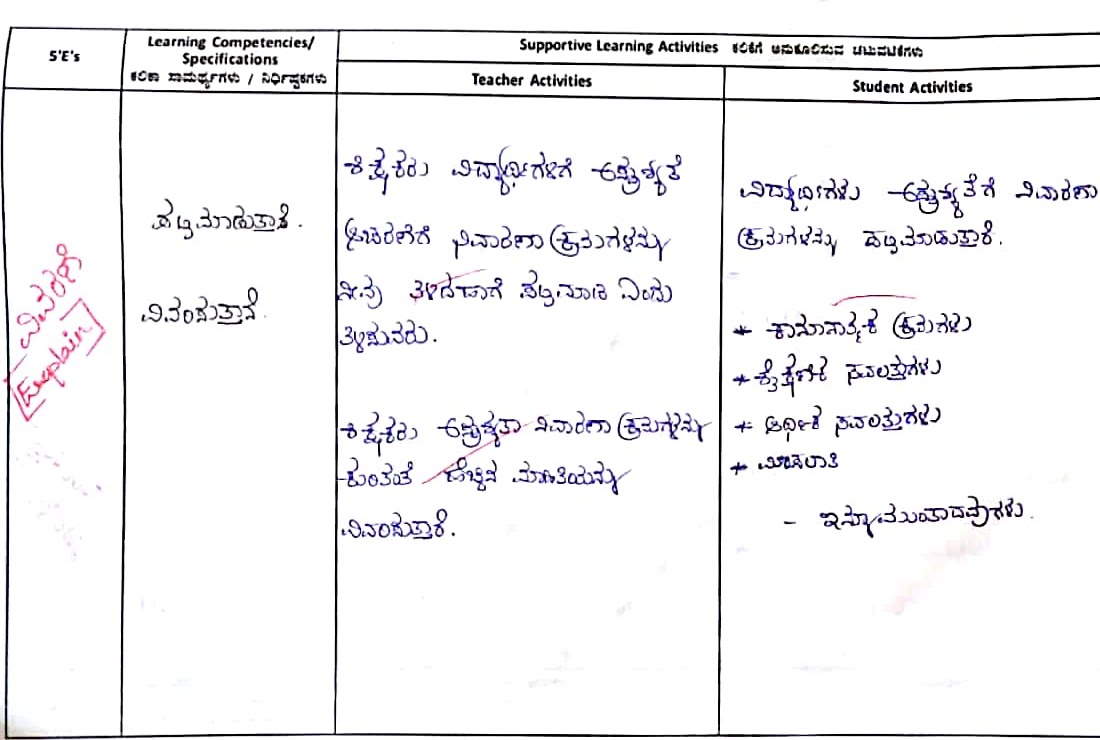 5'E's
Learning Competencies/
Specifications
ಕಲಿಕಾ ಸಾಮರ್ಥ್ಯಗಳು / ನಿರ್ಧಿಷ್ಟಕಗಳು
Supportive Learning Activities ಕಲಿಕೆಗೆ ಅನುಕೂಲಿಸುವ ಚಟುವಟಿಕೆಗಳು
Teacher Activities
Student Activities
ವಿವರಣೆ
Explain
ಪಟ್ಟಿಮಾಡುತ್ತಾರೆ.
ವಿವರಿಸುತ್ತಾನೆ.
ಶಿಕ್ಷಕರು ವಿದ್ಯಾರ್ಥಿಗಳಿಗೆ ಅಸ್ಪೃಶ್ಯತೆ
ಆಚರಣೆಗೆ ನಿವಾರಣಾ ಕ್ರಮಗಳನ್ನು
ನೀವು ತಿಳಿದಹಾಗೆ ಪಟ್ಟಿಮಾಡಿ ಎಂದು
ತಿಳಿಸುವರು.
ಶಿಕ್ಷಕರು ಅಸ್ಪೃಶ್ಯತಾ ನಿವಾರಣಾ ಕ್ರಮಗಳನ್ನು
ಕುರಿತಂತೆ ಹೆಚ್ಚಿನ ಮಾಹಿತಿಯನ್ನು
ವಿವರಿಸುತ್ತಾರೆ.
ವಿದ್ಯಾರ್ಥಿಗಳು ಅಸ್ಪೃಶ್ಯತೆಗೆ ನಿವಾರಣಾ
ಕ್ರಮಗಳನ್ನು ಪಟ್ಟಿಮಾಡುತ್ತಾರೆ.
* ಕಾನೂನಾತ್ಮಕ ಕ್ರಮಗಳು
* ಶೈಕ್ಷಣಿಕ ಸವಲತ್ತುಗಳು
* ಆರ್ಥಿಕ ಸವಲತ್ತುಗಳು
* ಮೀಸಲಾತಿ
- ಇನ್ನೂ ಮುಂತಾದವುಗಳು.